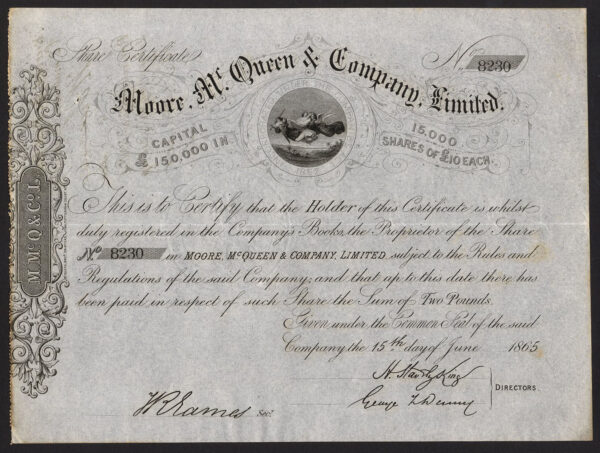 Share Certificate
No 8230
Moore, Mc. Queen & Company, Limited.
CAPITAL
£150,000 IN
15,000
SHARES OF £10 EACH
1862
M. McQ. & Co. L.
This is to Certify that the Holder of this Certificate is whilst
duly registered in the Company's Books, the Proprietor of the Share
No 8230 in MOORE, McQUEEN & COMPANY, LIMITED subject to the Rules and
Regulations of the said Company; and that up to this date there has
been paid in respect of such Share the Sum of Two Pounds.
Given under the Common Seal of the said
Company the 15th day of June 1865
H. Stanley King
George
DIRECTORS.
W R Eames Secy.